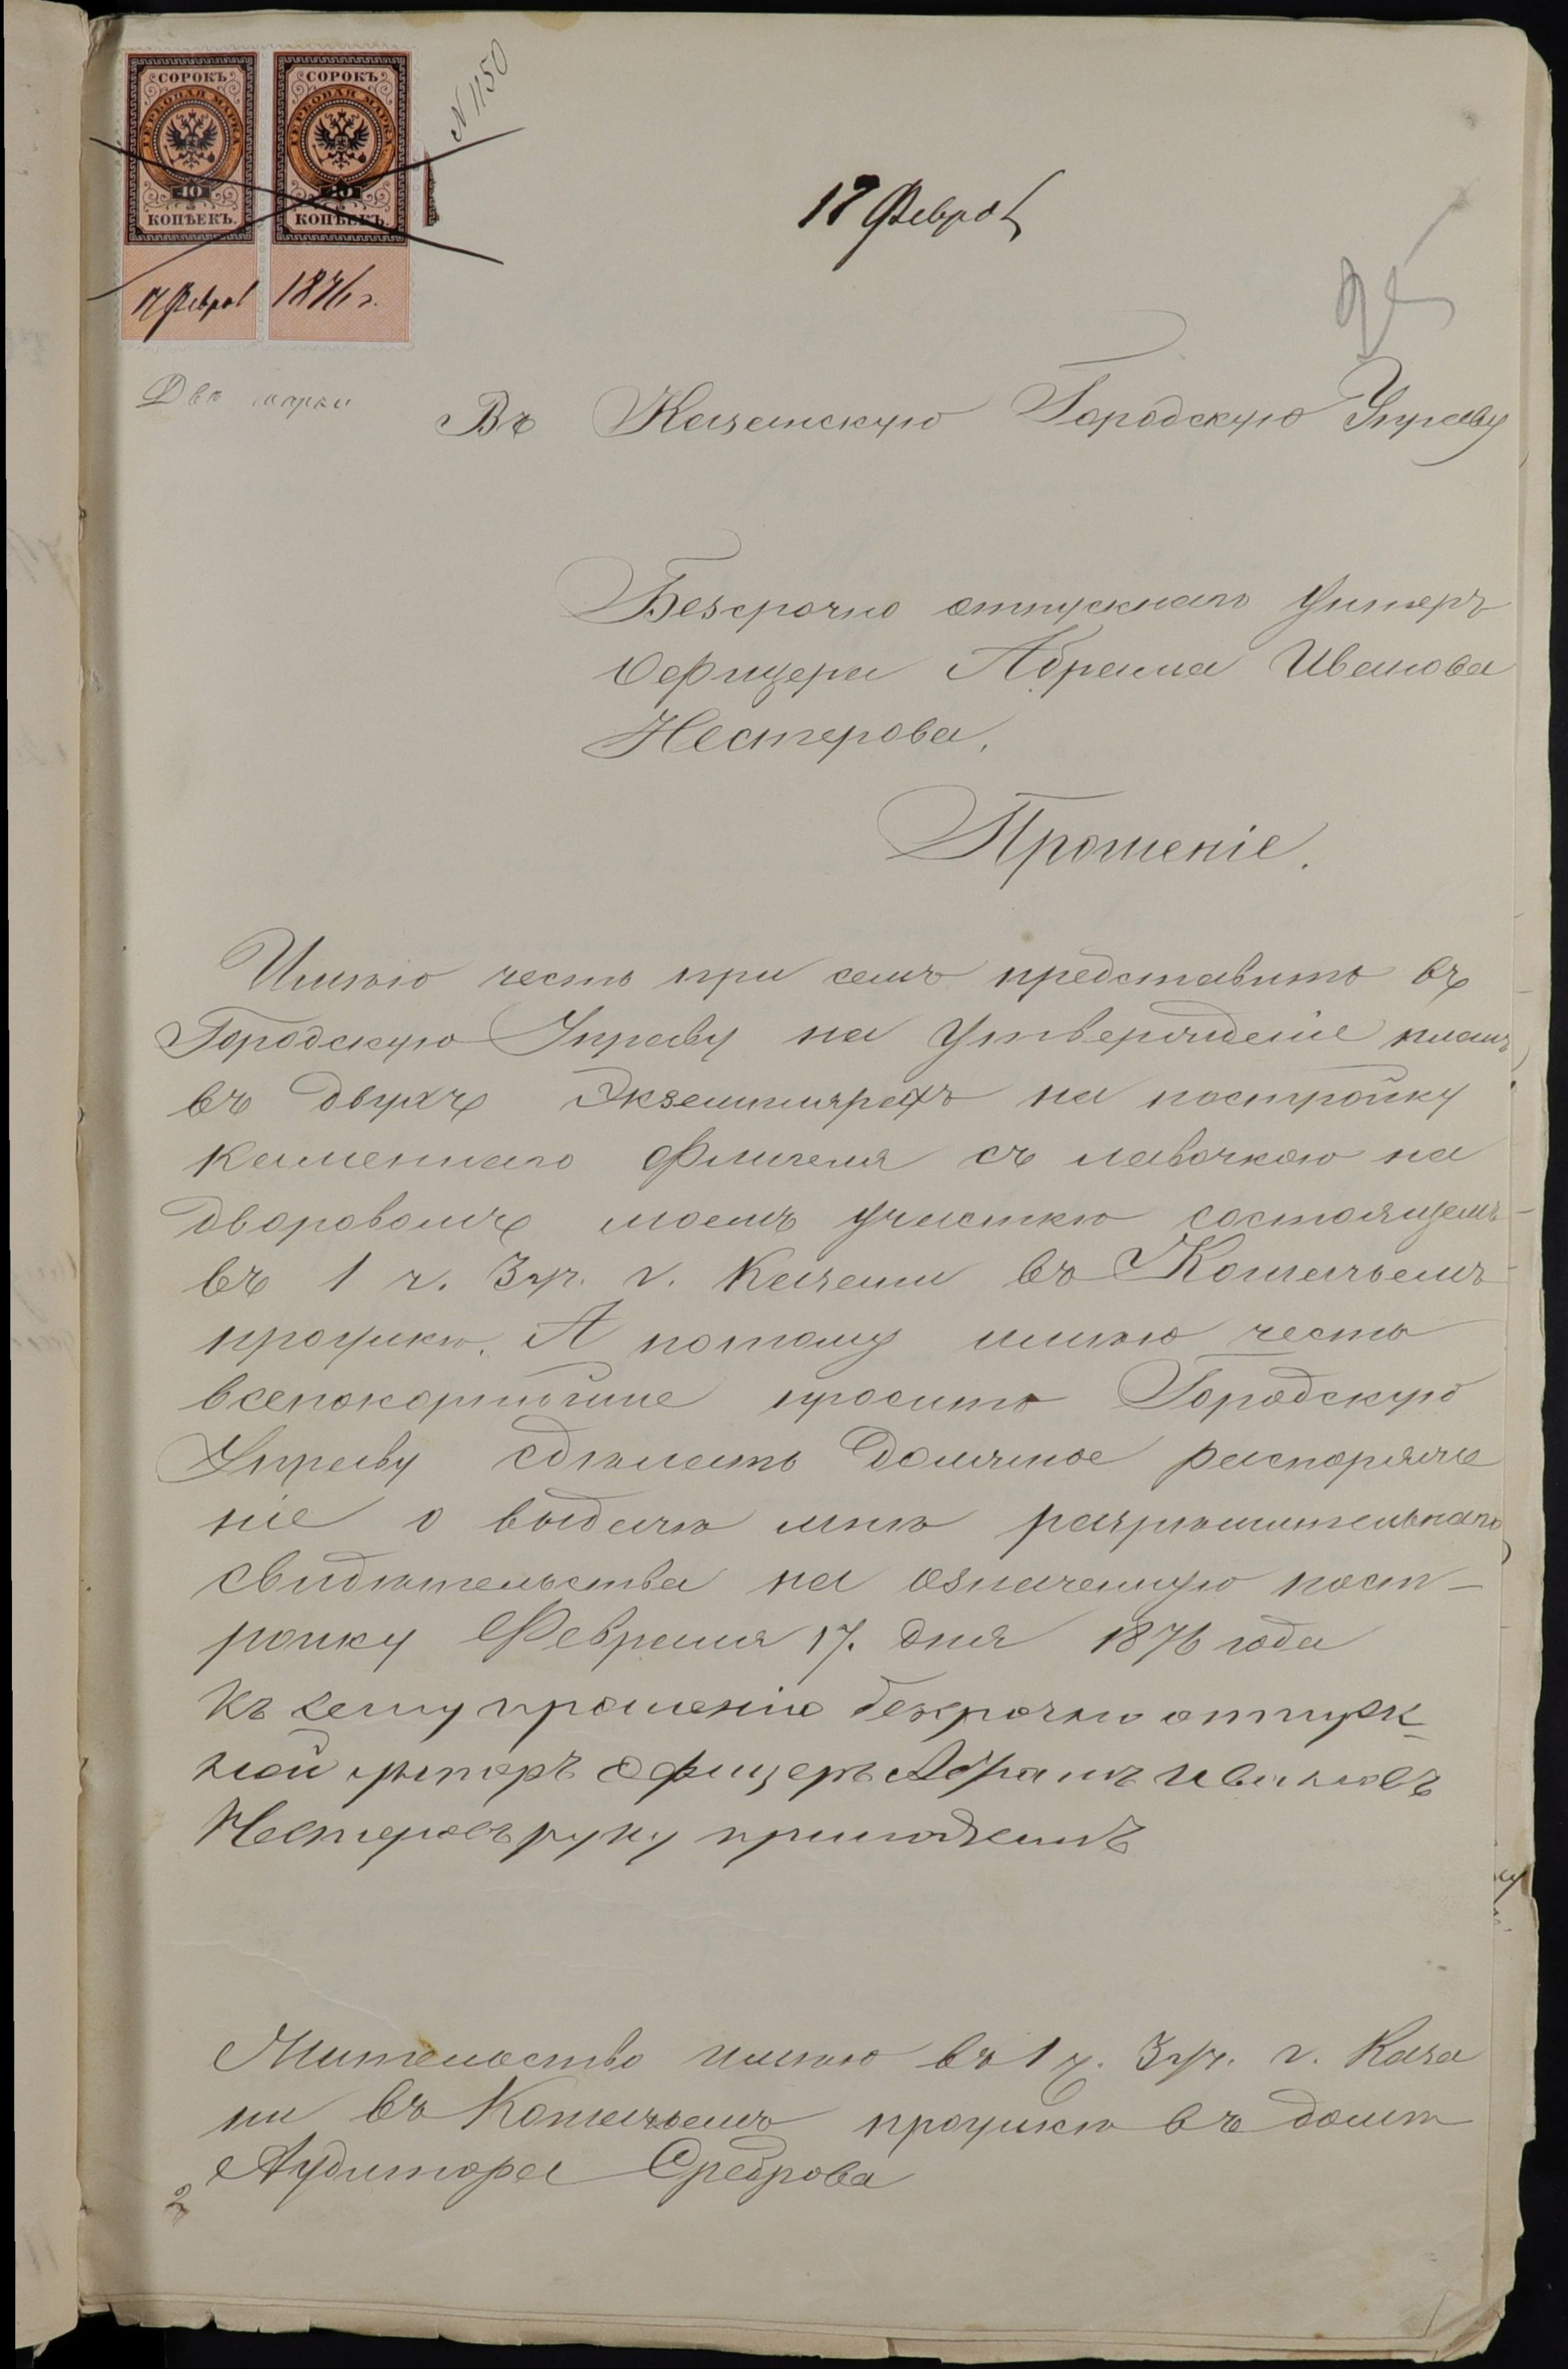 СОРОКЪ
ГЕРБОВАЯ МАРКА
40
КОПѢЕКЪ.
СОРОКЪ
ГЕРБОВАЯ МАРКА
40
КОПѢЕКЪ.
17 Феврал
1876 г.
N 1150
18 Феврал
Двѣ марки
Въ Казанскую Городскую Управу
Безсрочно отпускнаго Унтеръ
Офицера Абрама Иванова
Нестерова.
Прошеніе.
Имѣю честь при семъ представить въ
Городскую Управу на Утвержденіе планъ
въ двухъ Экземплярахъ на постройку
каменнаго Флигеля съ лавочкою на
дворовомъ моемъ участкѣ состоящемъ
въ 1 ч. 3 уч. г. Казани въ Кошачьемъ
проулкѣ. А потому имѣю честь
всепокорнѣйше просить Городскую
Управу сдѣлать Должное распоряже
ніе о выдачѣ мнѣ разрѣшительнаго
свидѣтельства на означенную пост-
ройку Февраля 17. дня 1876 года
Къ сему прошенію безсрочно отпуск-
ной унтеръ офицеръ Абрамъ Ивановъ
Нестеровъ руку приложилъ
Жительство имѣю въ 1 ч. 3 уч. г. Каза
ни въ Кошачьемъ проулкѣ въ домѣ
Аудитора Среброва
2